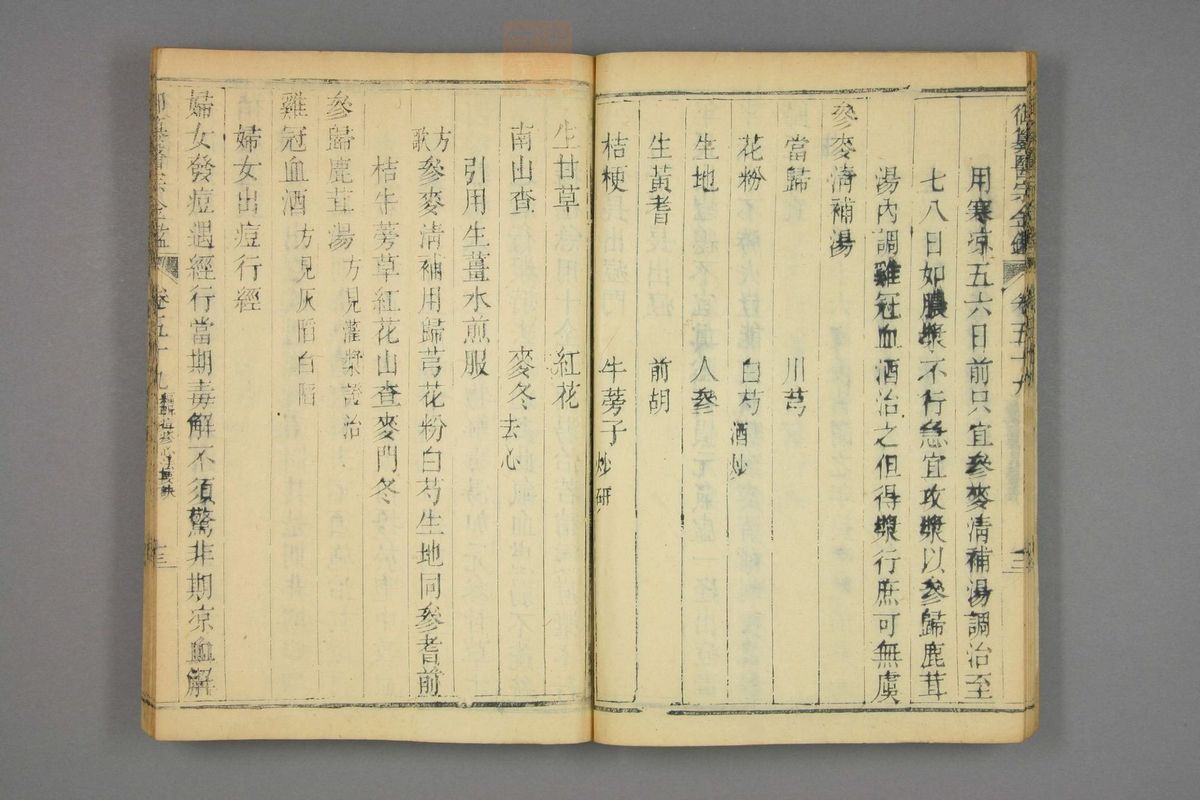 御纂醫宗金鑑 卷五十九 十三
用寒凉五六日前只宜參麥清補湯調治至
七八日如膿漿不行急宜攻漿以參歸鹿茸
湯內調雞冠血酒治之但得漿行庶可無虞
參麥清補湯
當歸 川芎
花粉 白芍酒炒
生地 人參
生黃耆 前胡
桔梗 牛蒡子炒研
生甘草 紅花
南山查 麥冬去心
引用生薑水煎服
方歌 參麥清補用歸芎花粉白芍生地同參耆前
桔牛蒡草紅花山查麥門冬
參歸鹿茸湯方見灌漿證治
雞冠血酒方見灰陷白陷
婦女出痘行經
婦女發痘遇經行當期毒解不須驚非期凉血解
醫宗金鑑 卷五十九 心法要訣 十三